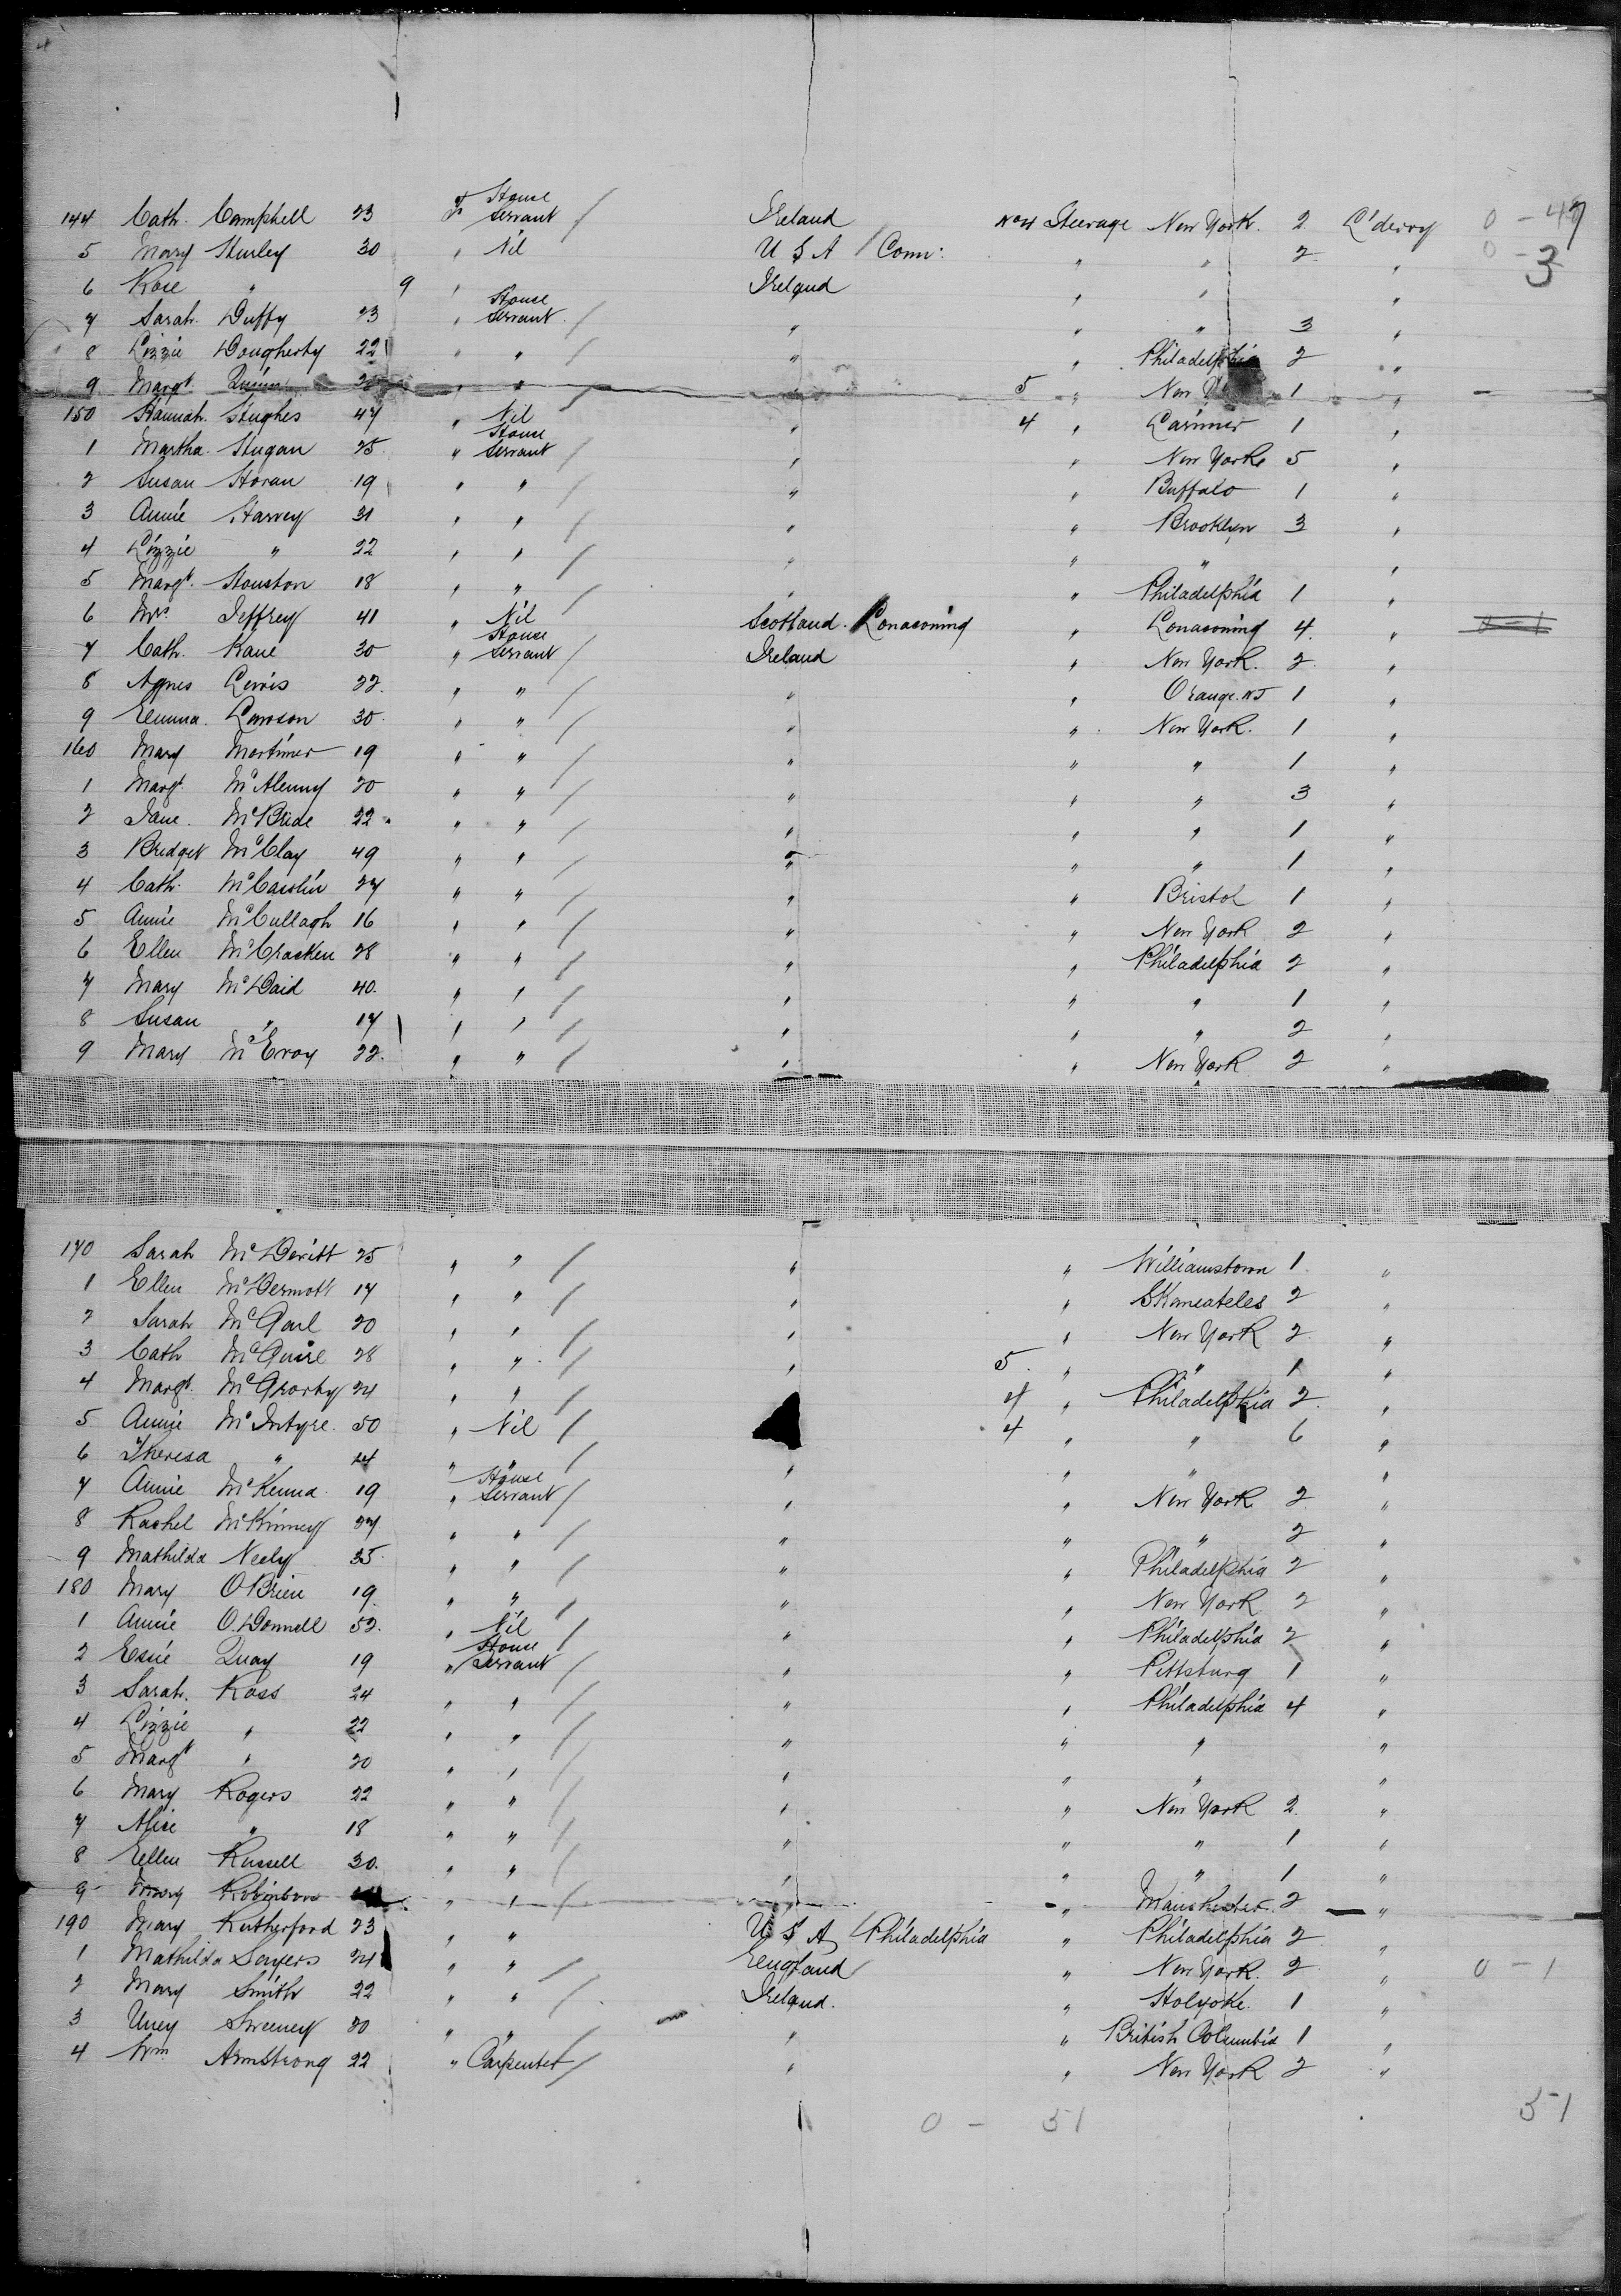 144 Cath. Campbell 23 F House Servant / Ireland No 4 Steerage New York. 2 L'derry 0 - 47
5 Mary Hurley 30 " Nil U S A / Conn: " " 2 " 0 - 3
6 Rose " 9 " Ireland " " "
7 Sarah. Duffy 23 " House Servant / " " " 3 "
8 Lizzie Dougherty 22 " " / " " Philadelphia 2 "
9 Margt. Quinn " " / " 5 " New 1 "
150 Hannah. Hughes 47 " Nil " 4 " Larimer 1 "
1 Martha. Hugan 25 " House Servant / " " New York 5 "
2 Susan Horan 19 " " / " " Buffalo 1 "
3 Annie Harvey 31 " " / " " Brooklyn 3 "
4 Lizzie " 22 " " / " " " "
5 Margt. Houston 18 " " / " " Philadelphia 1 "
6 Mrs. Jeffrey 41 " Nil Scotland. / Lonaconing " Lonaconing 4 " 0 - 1
7 Cath. Kane 30 " House Servant / Ireland " New York. 2 "
8 Agnes Lewis 22. " " / " " Orange. NJ 1 "
9 Emma. Lawson 30. " " / " " New York. 1 "
160 Mary Mortimer 19 " " / " " " 1 "
1 Margt. McAleny 20 " " / " " " 3 "
2 Jane. McBride 22. " " / " " " 1 "
3 Bridget McClay 49 " " / " " " 1 "
4 Cath. McCaslin 27 " " / " " Bristol 1 "
5 Annie McCullagh 16 " " / " " New York 2 "
6 Ellen McCracken 28 " " / " " Philadelphia 2 "
7 Mary McDaid 40. " " / " " " 1 "
8 Susan " 17 " " / " " " 2 "
9 Mary McEvoy 22. " " / " " New York 2 "
170 Sarah McDevitt 25 " " / " " Williamstown 1 "
1 Ellen McDermott 17 " " / " " Skaneateles 2 "
2 Sarah McGarl 20 " " / " " New York 2 "
3 Cath McGuire 28 " " / " 5. " " 1 "
4 Margt. McGrorty 24 " " / 4 " Philadelphia 2 "
5 Annie McIntyre. 50 " Nil / 4 " " 6 "
6 Theresa " 24 " " / " " " "
7 Annie McKenna 19 " House Servant / " " New York 2 "
8 Rachel McKinney 27 " " / " " " 2 "
9 Mathilda Neely 35. " " / " " Philadelphia 2 "
180 Mary O'Brien 19 " " / " " New York 2 "
1 Annie O.Donnell 52. " Nil / " " Philadelphia 2 "
2 Essie Quay 19 " House Servant / " " Pittsburg 1 "
3 Sarah. Ross 24 " " / " " Philadelphia 4 "
4 Lizzie " 22 " " / " " " "
5 Margt " 20 " " / " " " "
6 Mary Rogers 22 " " / " " New York 2. "
7 Alice " 18 " " / " " " 1 "
8 Ellen Russell 30. " " / " " " 1 "
9 Mary Robinson " " / " Manchester. 2 "
190 Mary Rutherford 23 " " U S A / Philadelphia " Philadelphia 2 "
1 Mathilda Sayers 24 " " / England " New York. 2 " 0 - 1
2 Mary Smith 22 " " / Ireland. " Holyoke. 1 "
3 Uney Sweeney 20 " " / " " British Columbia 1 "
4 Wm Armstrong 22 " Carpenter / " " New York 2 "
0 - 51 51